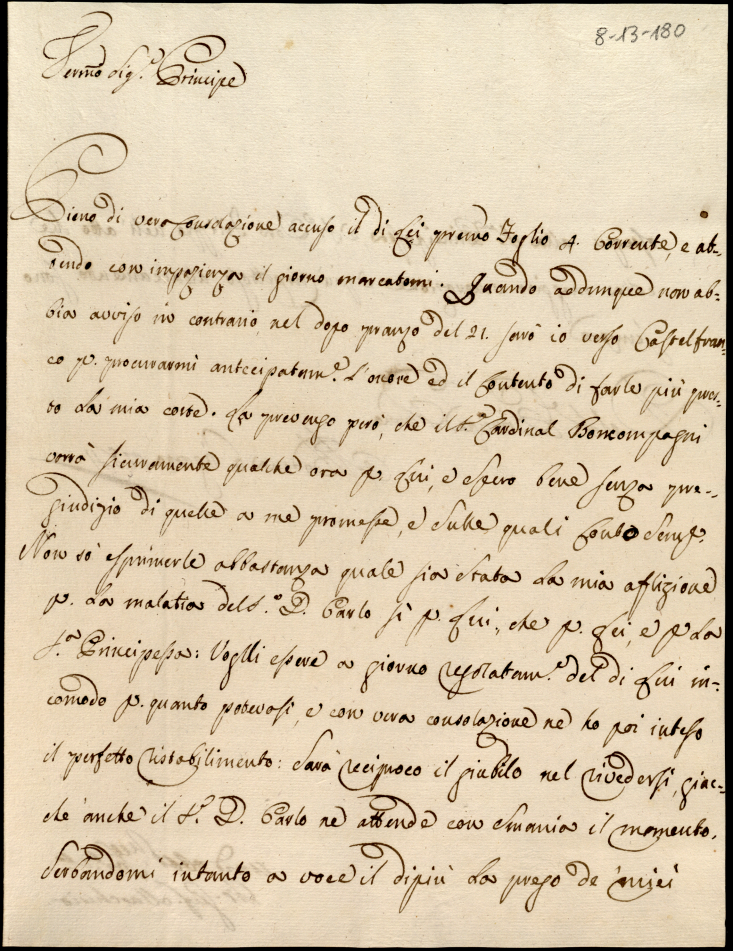 8-13-180
Sermo Sigr. Principe
Pieno di vera consolazione accuso il di Lei premo Foglio 4. Corrente, e at-
tendo con impazienza il giorno marcatomi. Quando addunque non ab-
bia avviso in contrario, nel dopo pranzo del 21. sarò io verso Castelfran-
co p. procurarmi antecipatame. L'onore ed il Contento di farle più pres-
to La mia corte. La prevengo però, che il Sr. Cardinal Boncompagni
vorrà sicuramente qualche ora p. Lui, e spero bene senza pre-
giudizio di quelle a me promesse, e sulle quali Conto semp.
Non sò esprimerle abbastanza quale sia stata La mia aflizione
p. La malatia del Sr. D. Carlo sì p. Lui, che p. Lei, e p La
Sra. Principessa: Voglli essere a giorno regolatame. del di Lui in-
comodo p. quanto potevasi, e con vera consolazione ne ho poi inteso
il perfetto ristabilimento: Sarà reciproco il giubilo nel rivedersi, giac-
chè anche il Sr. D. Carlo ne attende con smania il momento.
Serbandomi intanto a voce il dipiù La prego de' miei